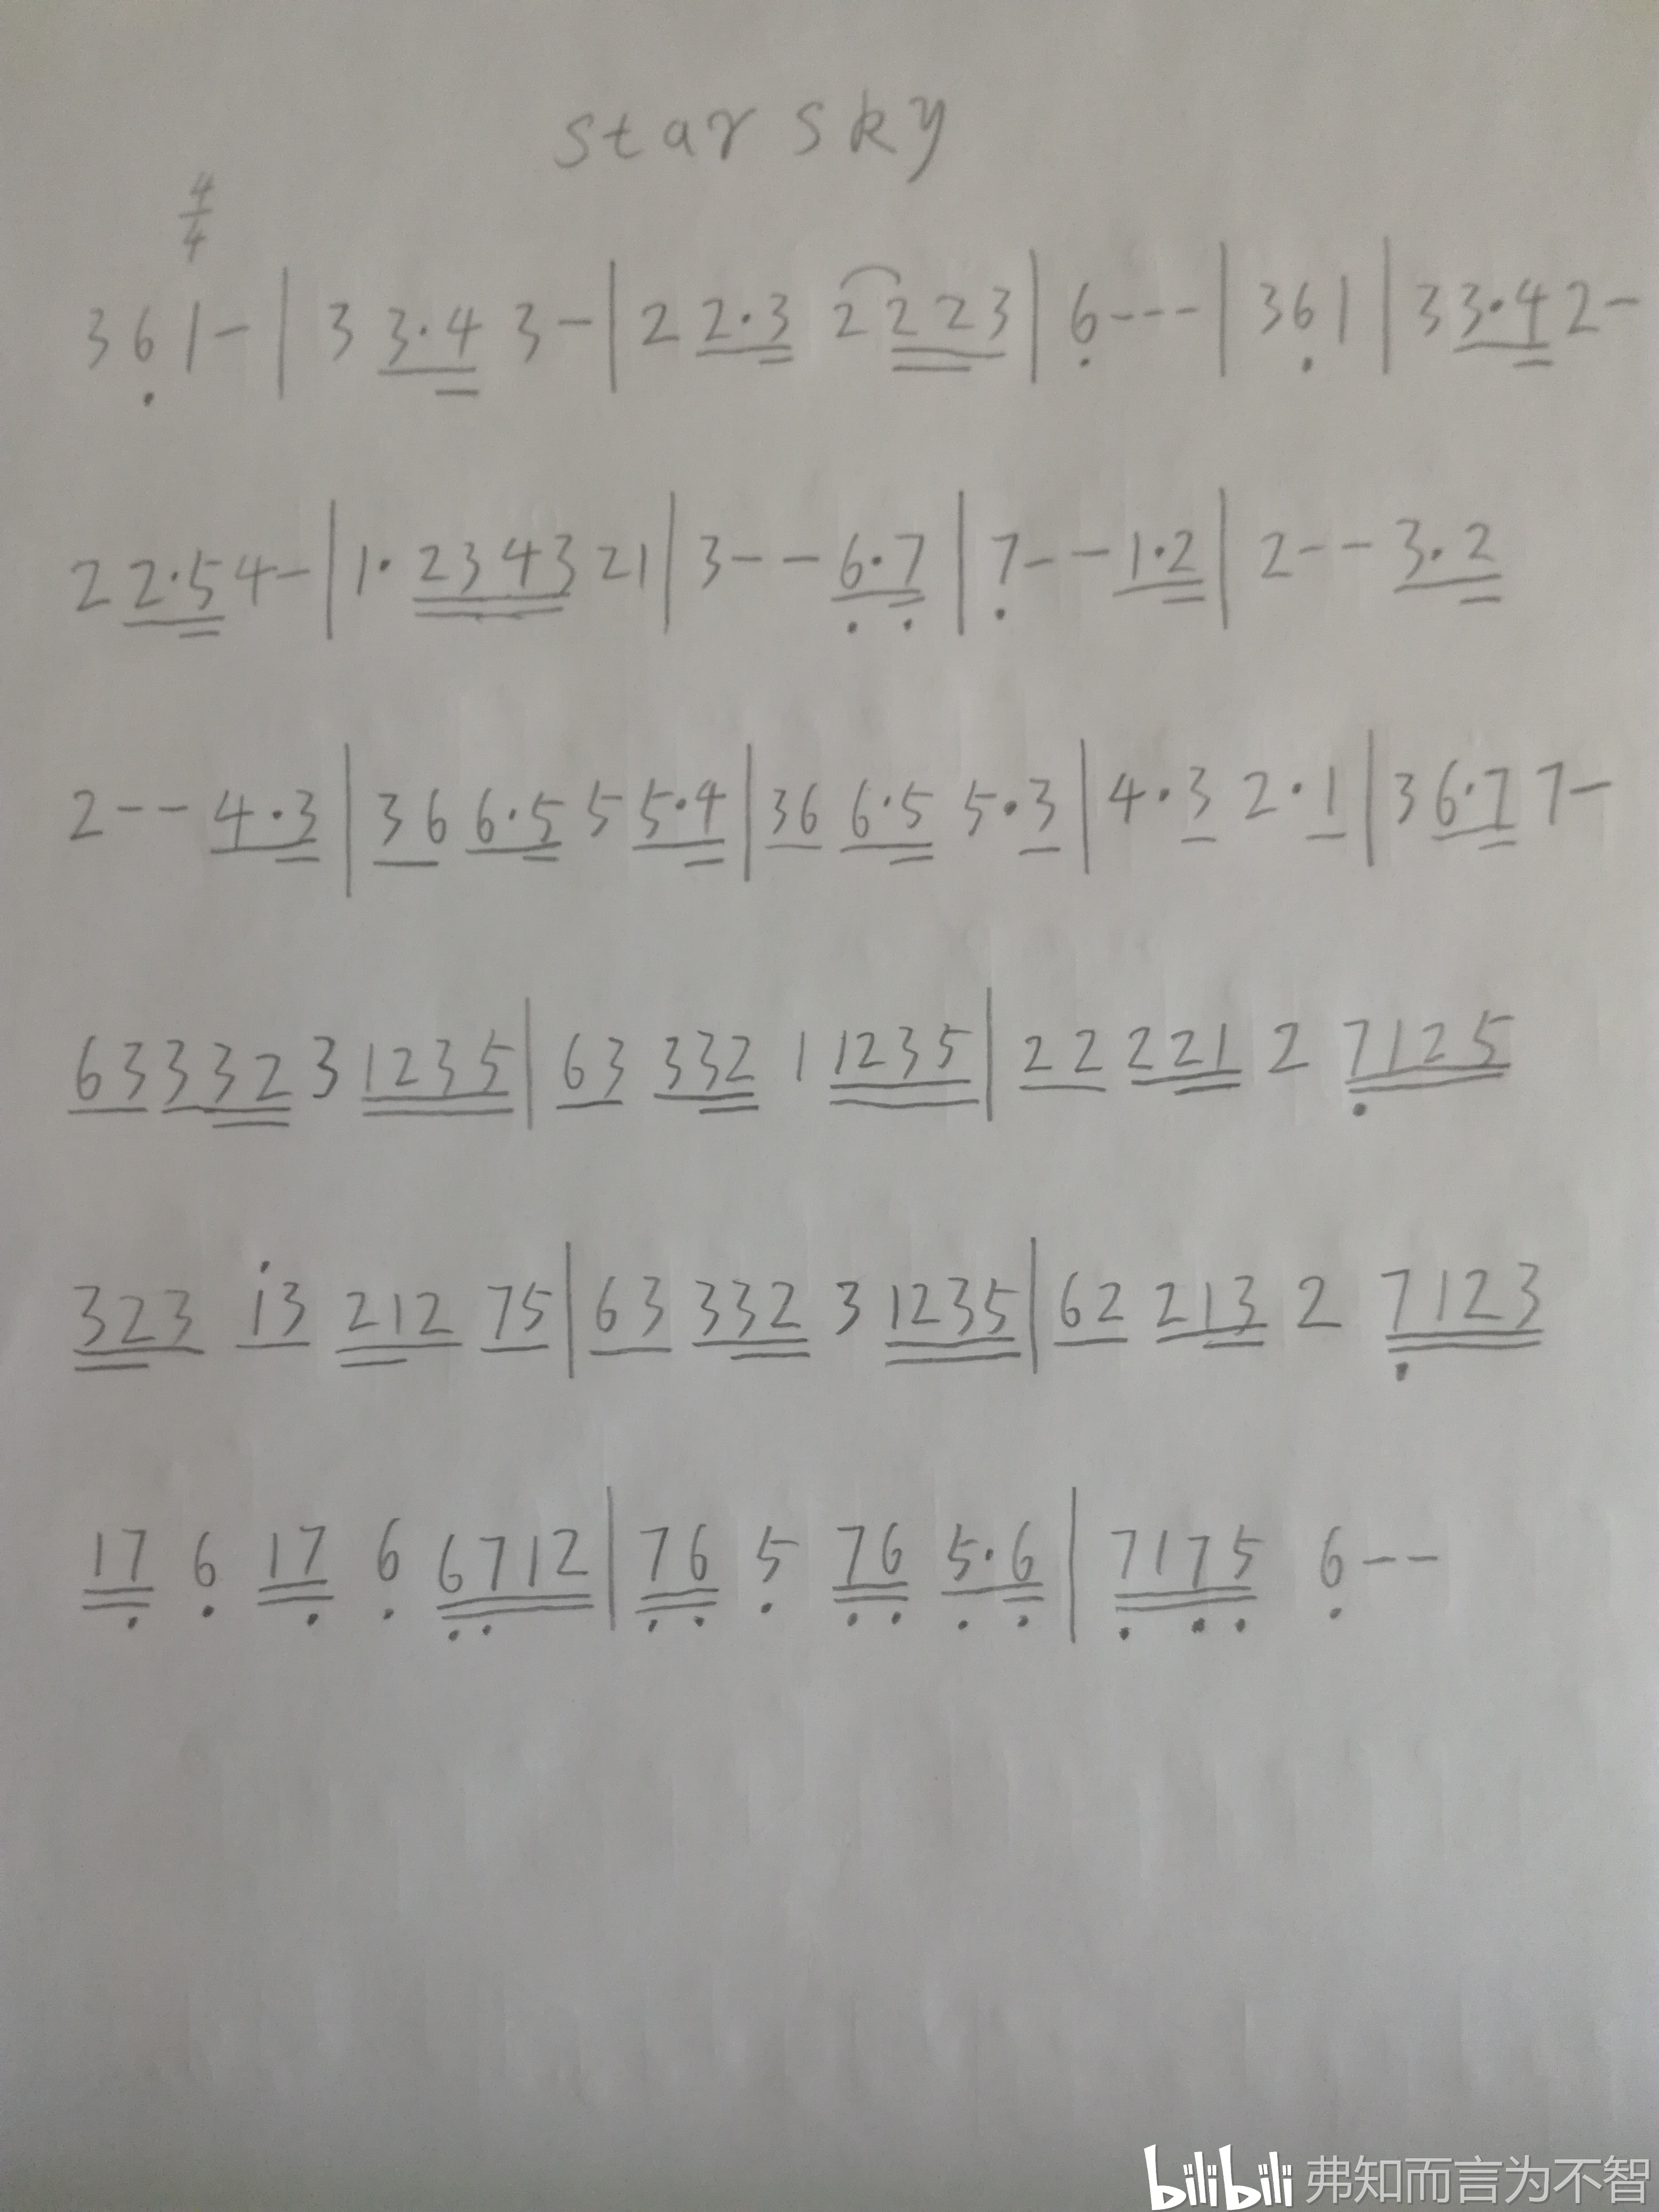 star sky
4/4
3 6̣ 1 - | 3 3·4 3 - | 2 2·3 2 2 2 3 | 6̣ - - - | 3 6̣ 1 | 3 3·4 2 -
2 2·5 4 - | 1· 2 3 4 3 2 1 | 3 - - 6̣·7̣ | 7̣ - - 1·2 | 2 - - 3·2
2 - - 4·3 | 3 6 6·5 5 5·4 | 3 6 6·5 5·3 | 4·3 2·1 | 3 6·7 7 -
6 3 3 3 2 3 1 2 3 5 | 6 3 3 3 2 1 1 2 3 5 | 2 2 2 2 1 2 7̣ 1 2 5
3 2 3 1̇ 3 2 1 2 7 5 | 6 3 3 3 2 3 1 2 3 5 | 6 2 2 1 3 2 7̣ 1 2 3
1 7̣ 6̣ 1 7̣ 6̣ 6̣ 7̣ 1 2 | 7̣ 6̣ 5̣ 7̣ 6̣ 5̣·6̣ | 7̣ 1 7̣ 5̣ 6̣ - -
bilibili 弗知而言为不智